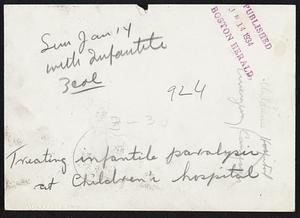 Sun Jan 14
with Infantile
3col
PUBLISHED
JAN 14 1934
BOSTON HERALD
924
Treating infantile paralysis
at Children's hospital